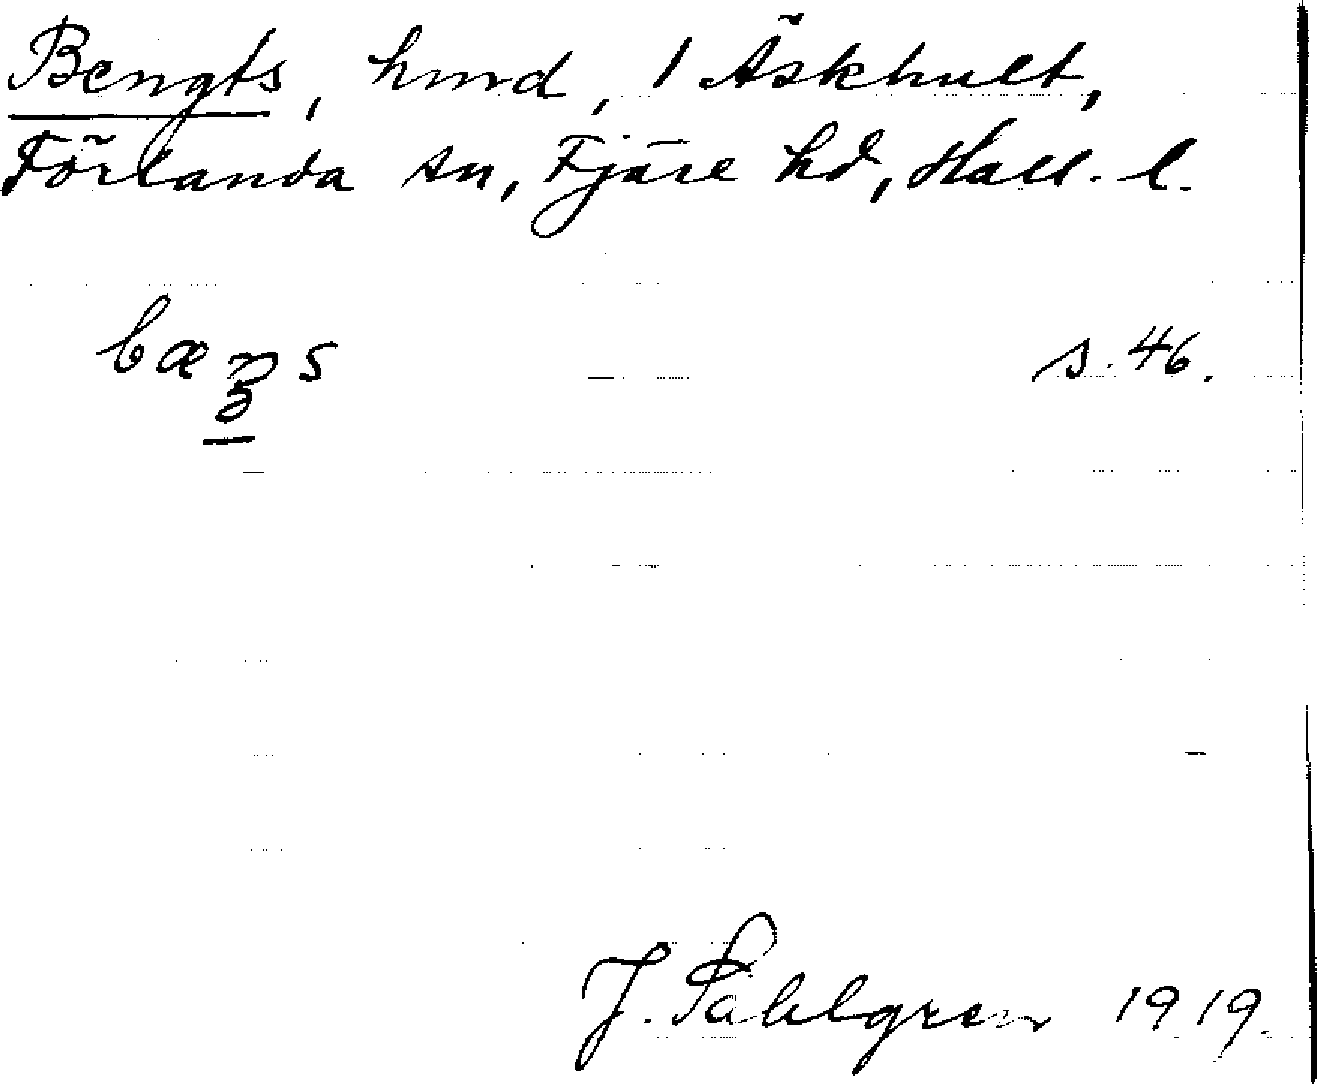 Bengts, hmd, 1 Äskhult,
Förlanda sn, Fjäre hd, Hall. l.
s. 46.
J. Sahlgren 1919.